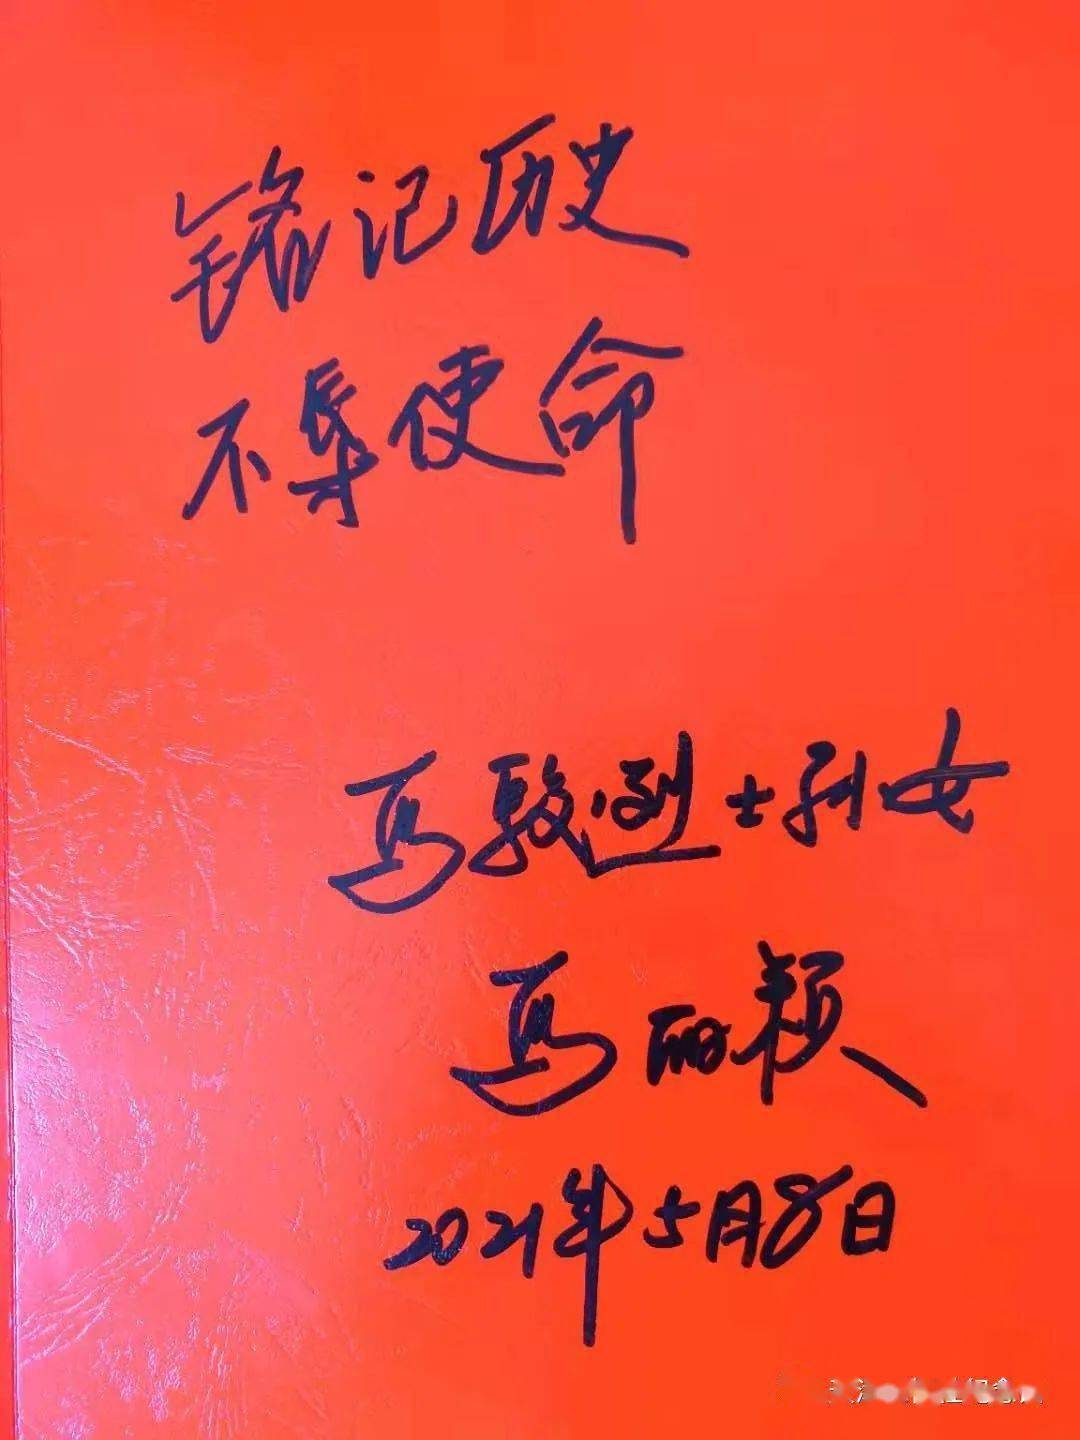 铭记历史
不辱使命
马骏烈士孙女
马丽颖
2021年5月8日